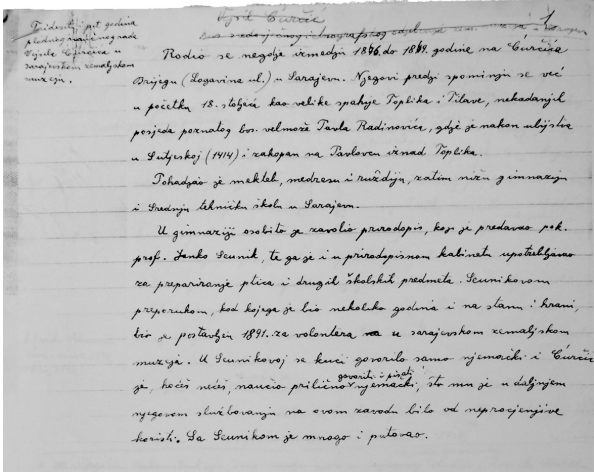 Trideset i pet godina
plodnog naučnog rada
Vejsila Ćurčića u
sarajevskom zemaljskom
muzeju.
Vejsil Ćurčić
1
Rodio se negdje između 1866. do 1869. godine na Ćurčića
Brijegu (Logavina ul.) u Sarajevu. Njegovi predji spominju se već
u početku 18. stoljeća kao velike spahije Toplika i Vilave, nekadanjih
posjeda poznatog bos. velmože Pavla Radinovića, gdje je nakon ubijstva
u Sutjeskoj (1414) i zakopan na Pavlovcu iznad Toplika.
Pohadjao je mekteb, medresu i ruždiju, zatim nižu gimnaziju
i Srednju tehničku školu u Sarajevu.
U gimnaziji osobito je zavolio prirodopis, koji je predavao pok.
prof. Janko Seunik, te ga je i u prirodopisnom kabinetu upotrebljavao
za prepariranje ptica i drugih školskih predmeta. Seunikovom
preporukom, kod kojega je bio nekoliko godina i na stanu i hrani,
bio je postavljen 1891. za volontera u sarajevskom zemaljskom
muzeju. U Seunikovoj se kući govorilo samo njemački i Ćurčić
je, hoćeš nećeš, naučio prilično govoriti i pisati njemački, što mu je u daljnjem
njegovom službovanju na ovom zavodu bilo od neprocjenjive
koristi. Sa Seunikom je mnogo i putovao.